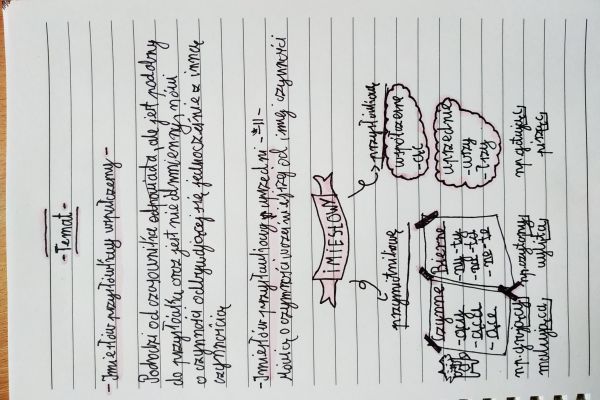 -Temat-
-Imiesłów przysłówkowy współczesny-
Pochodzi od czasownika odpowiada, ale jest podobny
do przysłówka oraz jest nieodmienny, mówi
o czynności odbywającej się jednocześnie z inną
czynnością
-Imiesłów przysłówkowy uprzedni -*11-
Mówią o czynności wcześniejszej od innej czynności
IMIESŁOWY
przymiotnikowe
Czynne
-ący
-ąca
-ące
Bierne
-ny -ty
-na -ta
-ne -te
np. grający
malujący
np. czytany
przysłówkowe
współczesne
-ąc
uprzednie
-wszy
-łszy
np. gotując